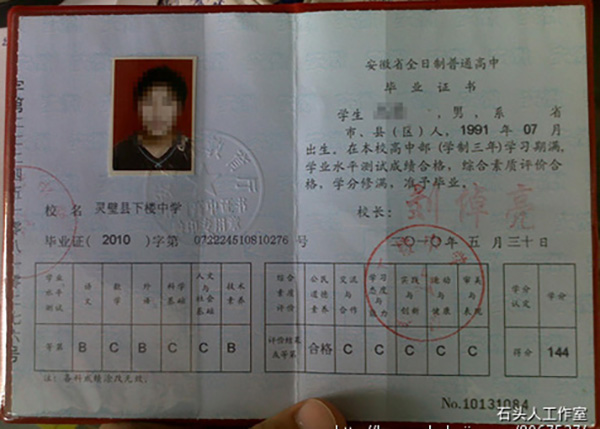 校 名 灵璧县下楼中学
毕业证（2010）字第 072224510810276 号
学业水平测试 语文 数学 外语 科学基础 人文与社会基础 技术素养
等第 B C B C C B
注：各科成绩涂改无效。
安徽省全日制普通高中
毕 业 证 书
学生 ，男，系 省
市、县（区）人，1991 年 07 月
出生。在本校高中部（学制三年）学习期满，
学业水平测试成绩合格，综合素质评价合
格，学分修满，准予毕业。
校长：
二〇一〇年 五 月 三十日
综合素质评价 公民道德素养 交流与合作 学习态度与能力 实践与创新 运动与健康 审美与表现
评价结果及等第 合格 C C C C C
学分认定 学分
得分 144
No.10131084
石头人工作室